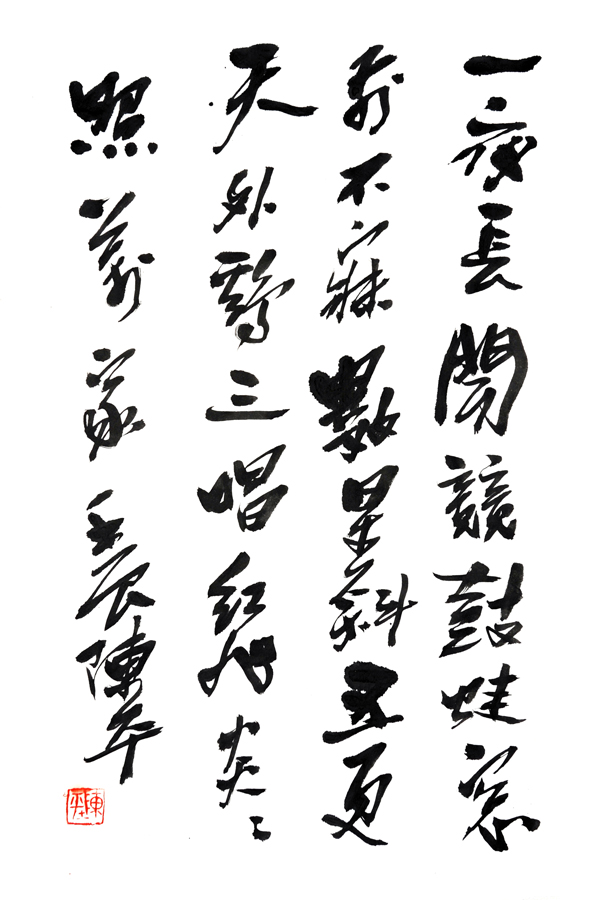 一夜長聞競鼓蛙窓
前不寐數星斜五更
天外鷄三唱紅旭炎々
照萬家 壬辰陳平